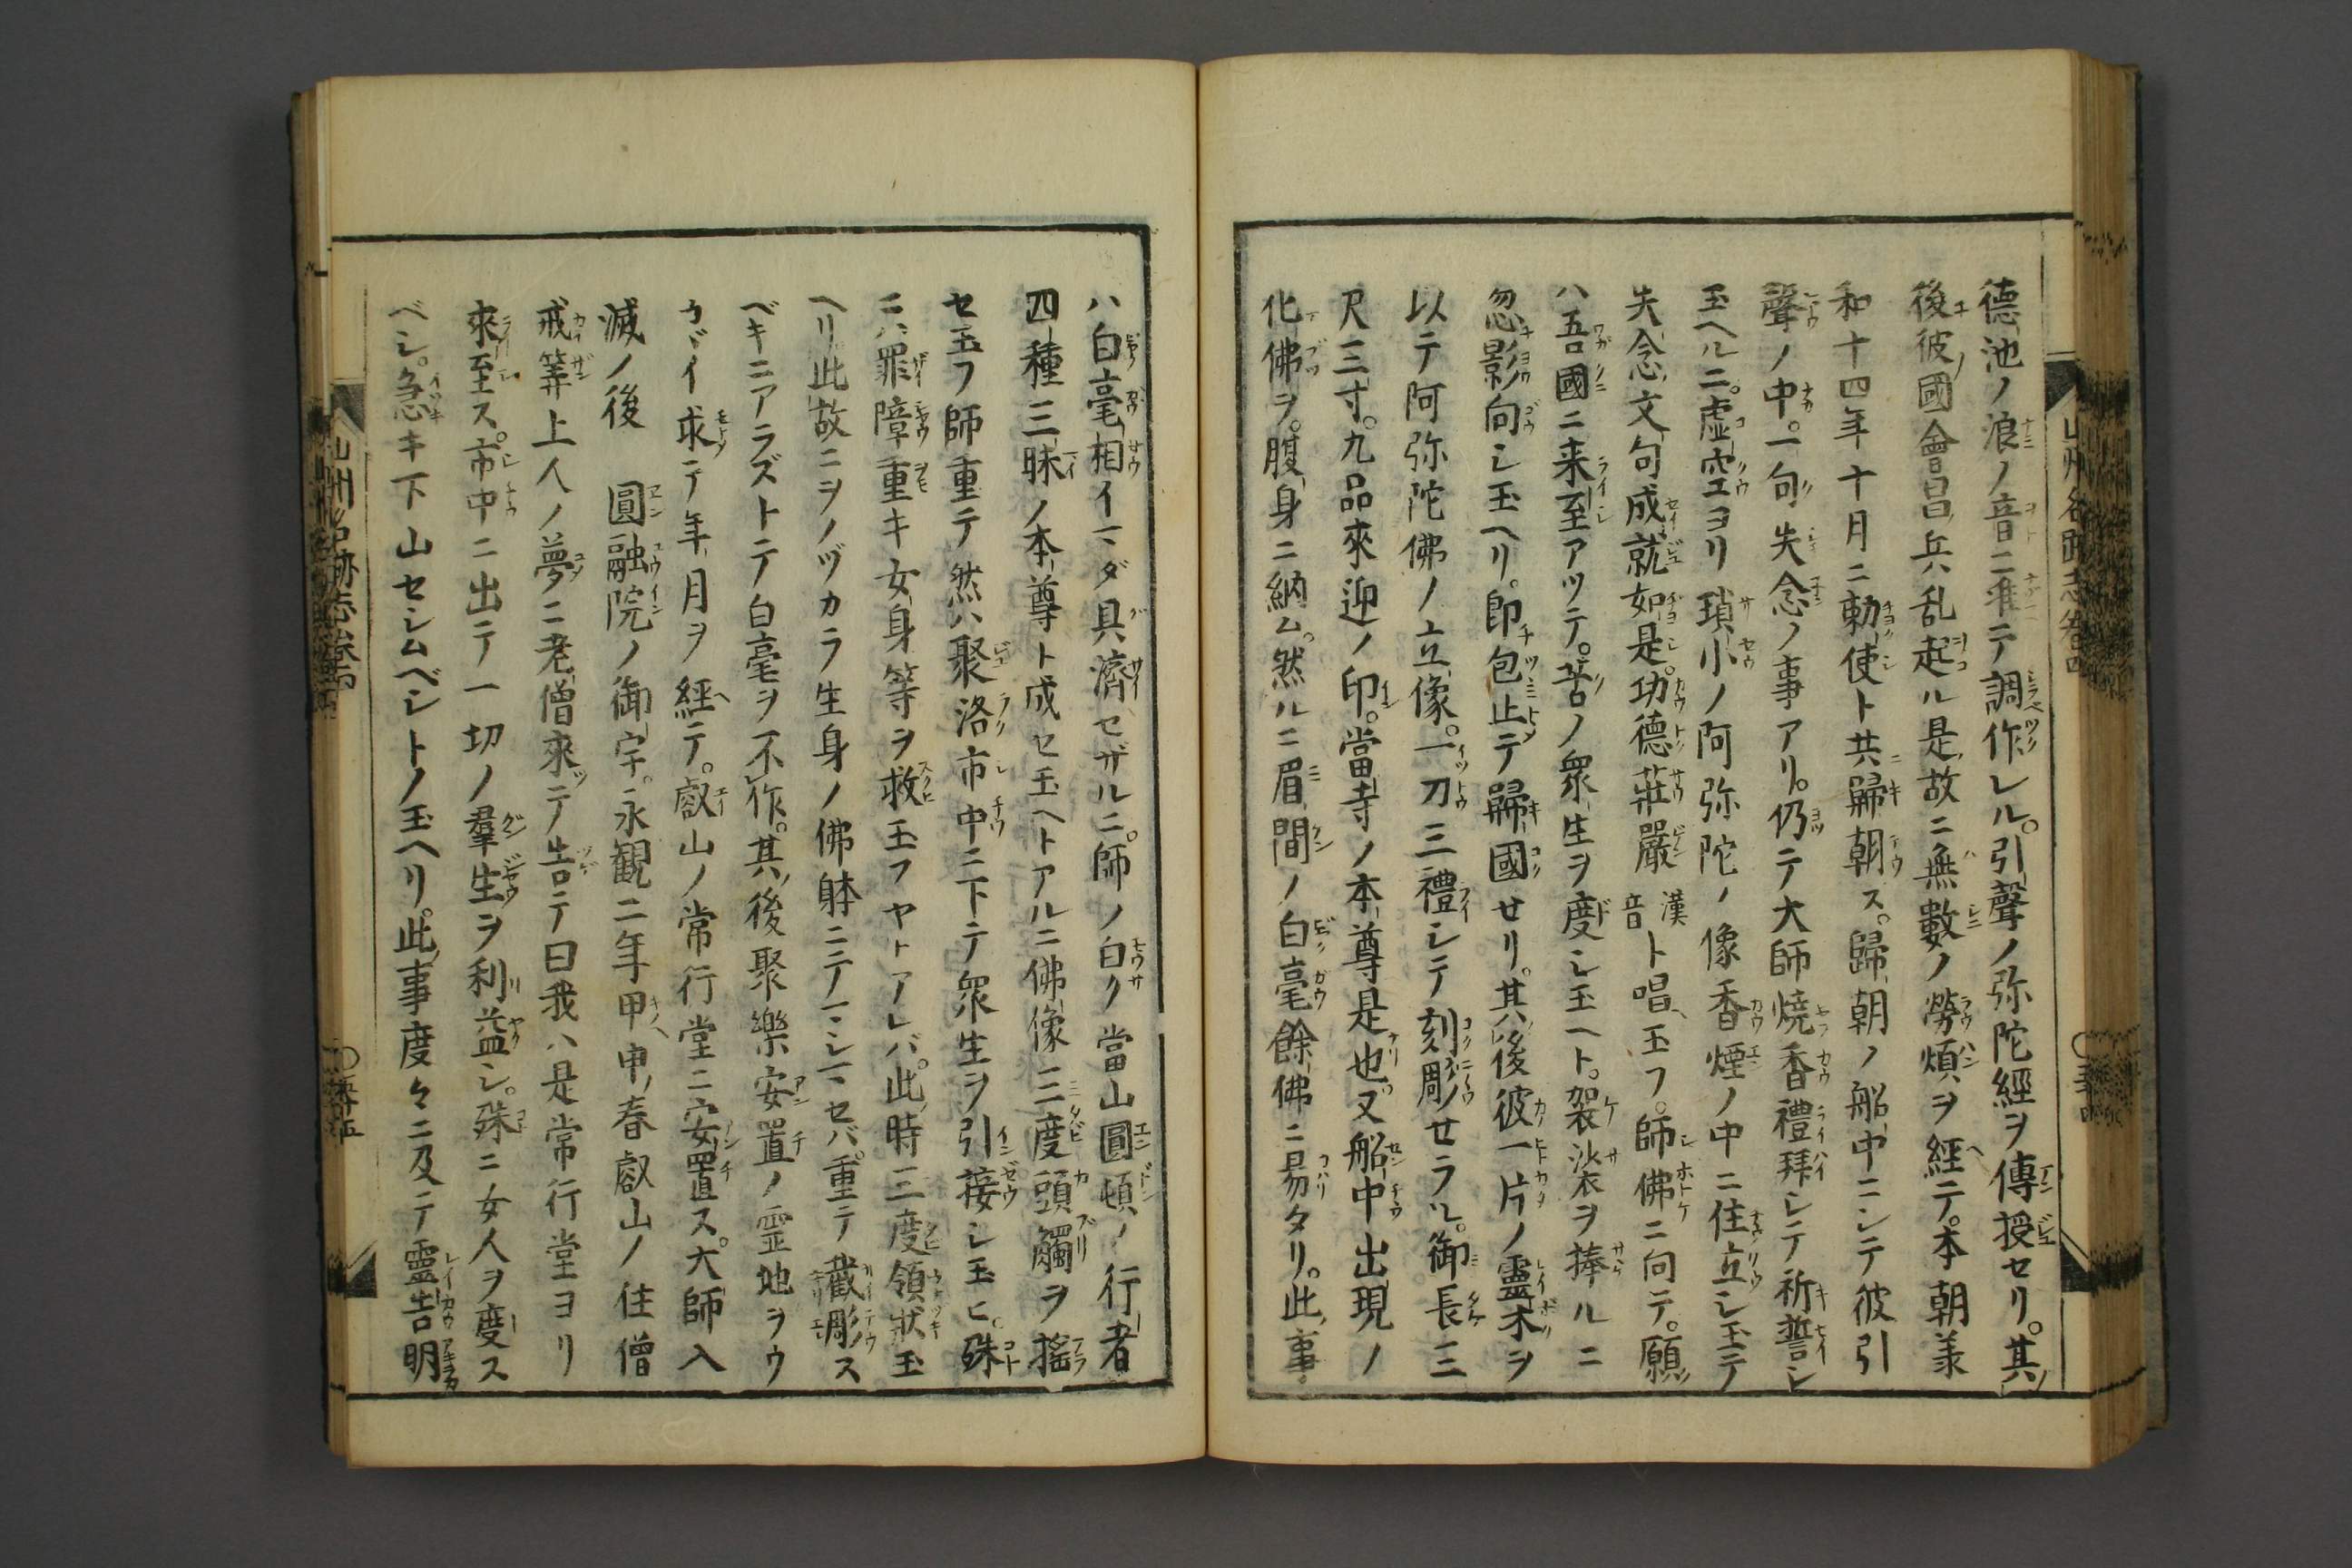 德池ノ浪ノ音ニ准テ調作レル。引聲ノ弥陀經ヲ傳授セリ。其
後彼國會昌兵乱起ル是故ニ無數ノ勞煩ヲ經テ。本朝羕
和十四年十月ニ勅使ト共歸朝ス。歸朝ノ船中ニシテ彼引
聲ノ中。一句失念ノ事アリ。仍テ大師燒香禮拜シテ祈誓シ
玉ヘルニ。虚空ヨリ瑣小ノ阿弥陀ノ像香煙ノ中ニ住立シ玉テ
失念文句成就如是。功德莊嚴漢音ト唱玉フ。師佛ニ向テ。願
ハ吾國ニ来至アツテ。苦ノ衆生ヲ度シ玉ヘト。袈裟ヲ捧ルニ
忽影向シ玉ヘリ。即包止テ歸國セリ。其後彼一片ノ靈木ヲ
以テ阿弥陀佛ノ立像。一刀三禮シテ刻彫セラル。御長三
尺三寸。九品來迎ノ印。當寺ノ本尊是也又船中出現ノ
化佛ヲ。腹身ニ納ム。然ルニ眉間ノ白毫餘佛ニ易タリ。此事
ハ白毫相イマダ具濟セザルニ。師ノ白ク當山圓頓ノ行者
四種三昧ノ本尊ト成セ玉ヘトアルニ佛像三度頭觸ヲ搖
セ玉フ師重テ然ハ聚洛市中ニ下テ衆生ヲ引接シ玉ヒ。殊
ニハ罪障重キ女身等ヲ救玉フヤトアレバ。此時三度領狀玉
ヘリ此故ニヲノヅカラ生身ノ佛躰ニテマシマセバ。重テ截彫ス
ベキニアラズトテ白毫ヲ不作。其後聚樂安置ノ霊地ヲウ
カヾイ求テ年月ヲ經テ。叡山ノ常行堂ニ安置ス。大師入
滅ノ後 圓融院ノ御宇。永観二年甲申春叡山ノ住僧
戒筭上人ノ夢ニ老僧來テ告テ曰我ハ是常行堂ヨリ
來至ス。市中ニ出テ一切ノ羣生ヲ利益シ。殊ニ女人ヲ度ス
ベシ。急キ下山セシムベシトノ玉ヘリ。此事度々ニ及テ靈告明
山州名跡志卷四